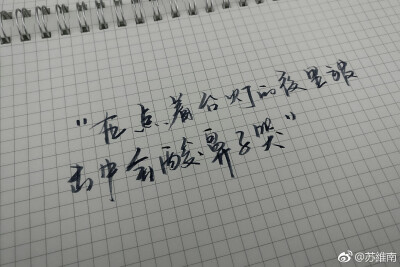 "在点着台灯的夜里被
击中会酸鼻子哭"
@苏维南